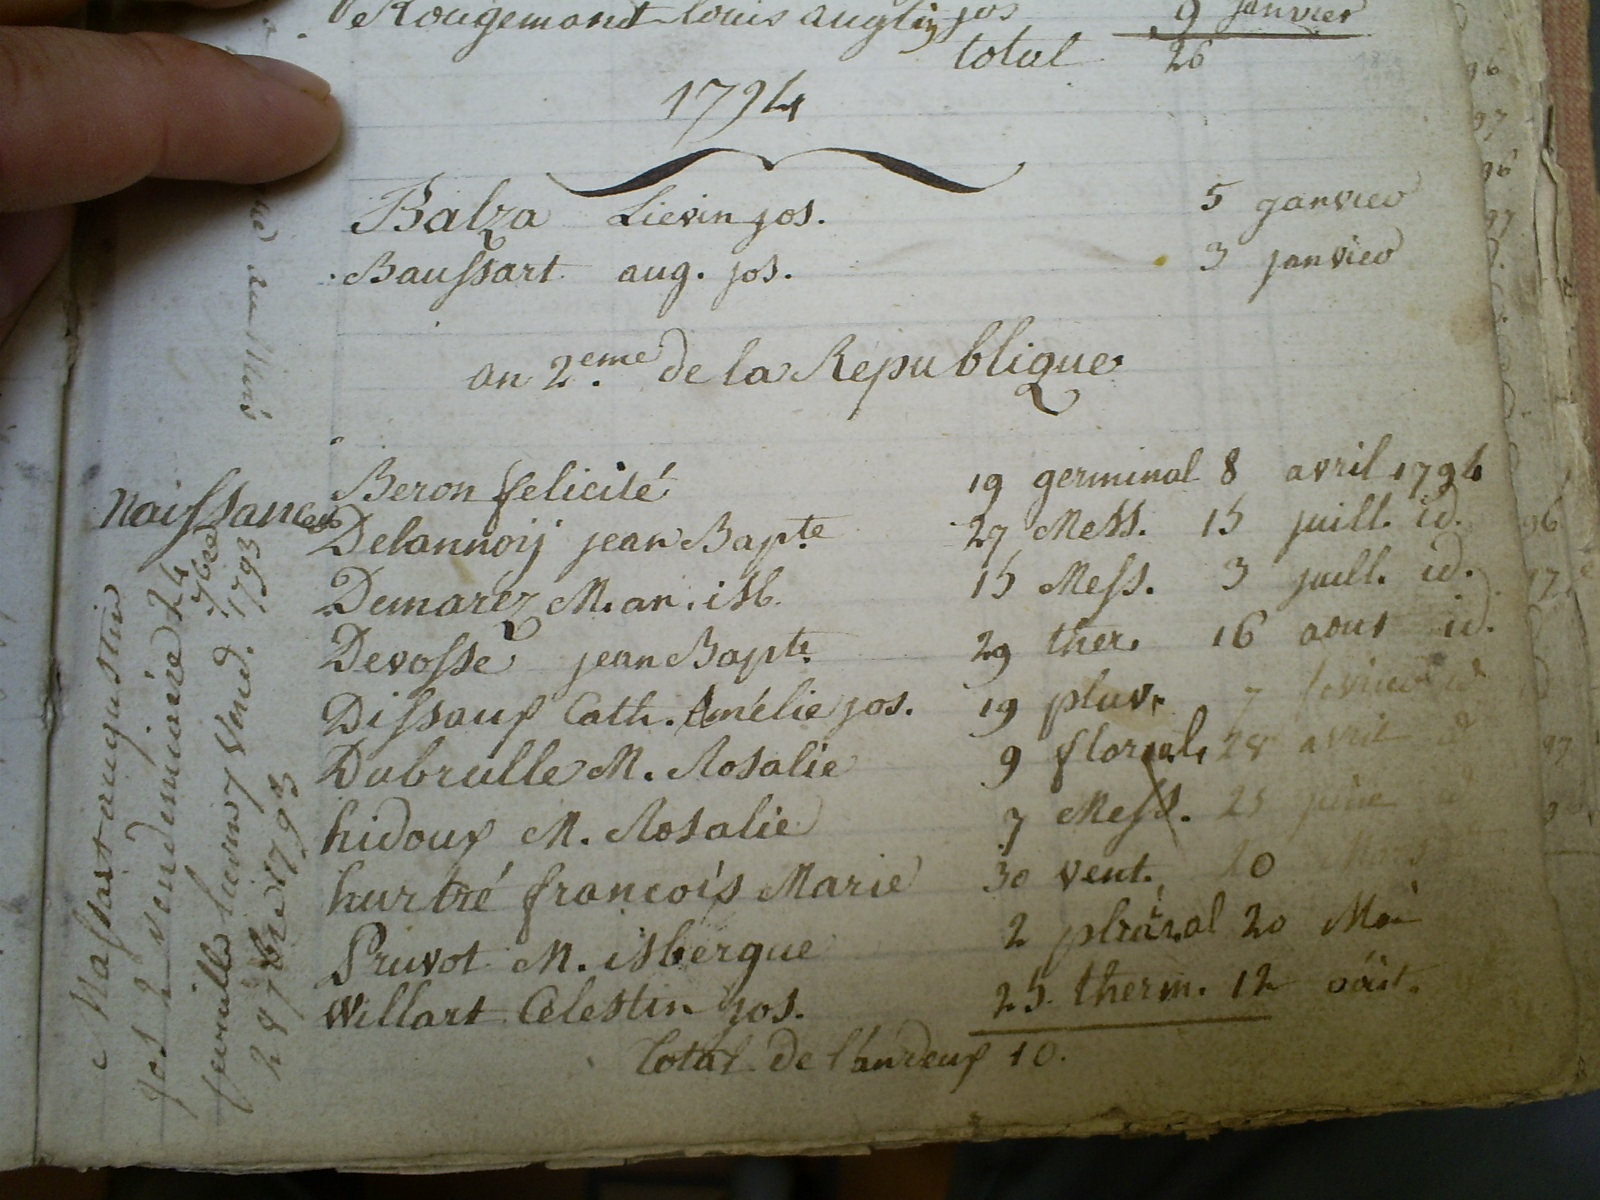 Rougemond louis augtin jos 9 janvier
total 26
1794
Balza Lievin jos. 5 janvier
Baussart aug. jos. 3 janvier
an 2.eme de la Republique
Naissances
Beron felicité 19 germinal 8 avril 1794
Delannoij jean Bapte 27 Mess. 15 juill. id.
Demarez M. an. isb. 15 Mess. 3 juill. id.
Devosse jean Bapte 29 ther. 16 aout id.
Dissaux Cath. Amélie jos. 19 pluv. 7 fevrier id
Dubrulle M. Rosalie 9 floreal 28 avril id
hidoux M. Rosalie 7 Mess. 25 juin id
hurtré francois Marie 30 vent. 20 Mars
Pruvot M. isbergue 2 20 Mai
Willart Celestin jos. 25 therm. 12 août.
Total de l'an deux 10.
Massart augustin
jos 2 vendemiaire 24
7bre
lievin 7 Vend. 1793
28 7bre 1793